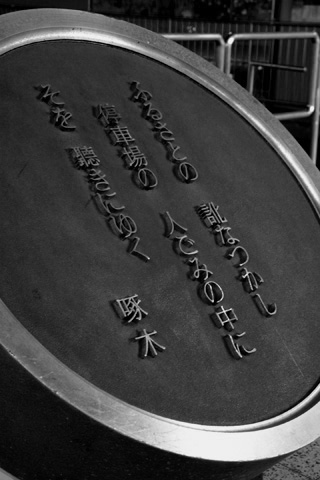 ふるさとの 訛なつかし
停車場の 人ごみの中に
そを 聴きにゆく
啄木